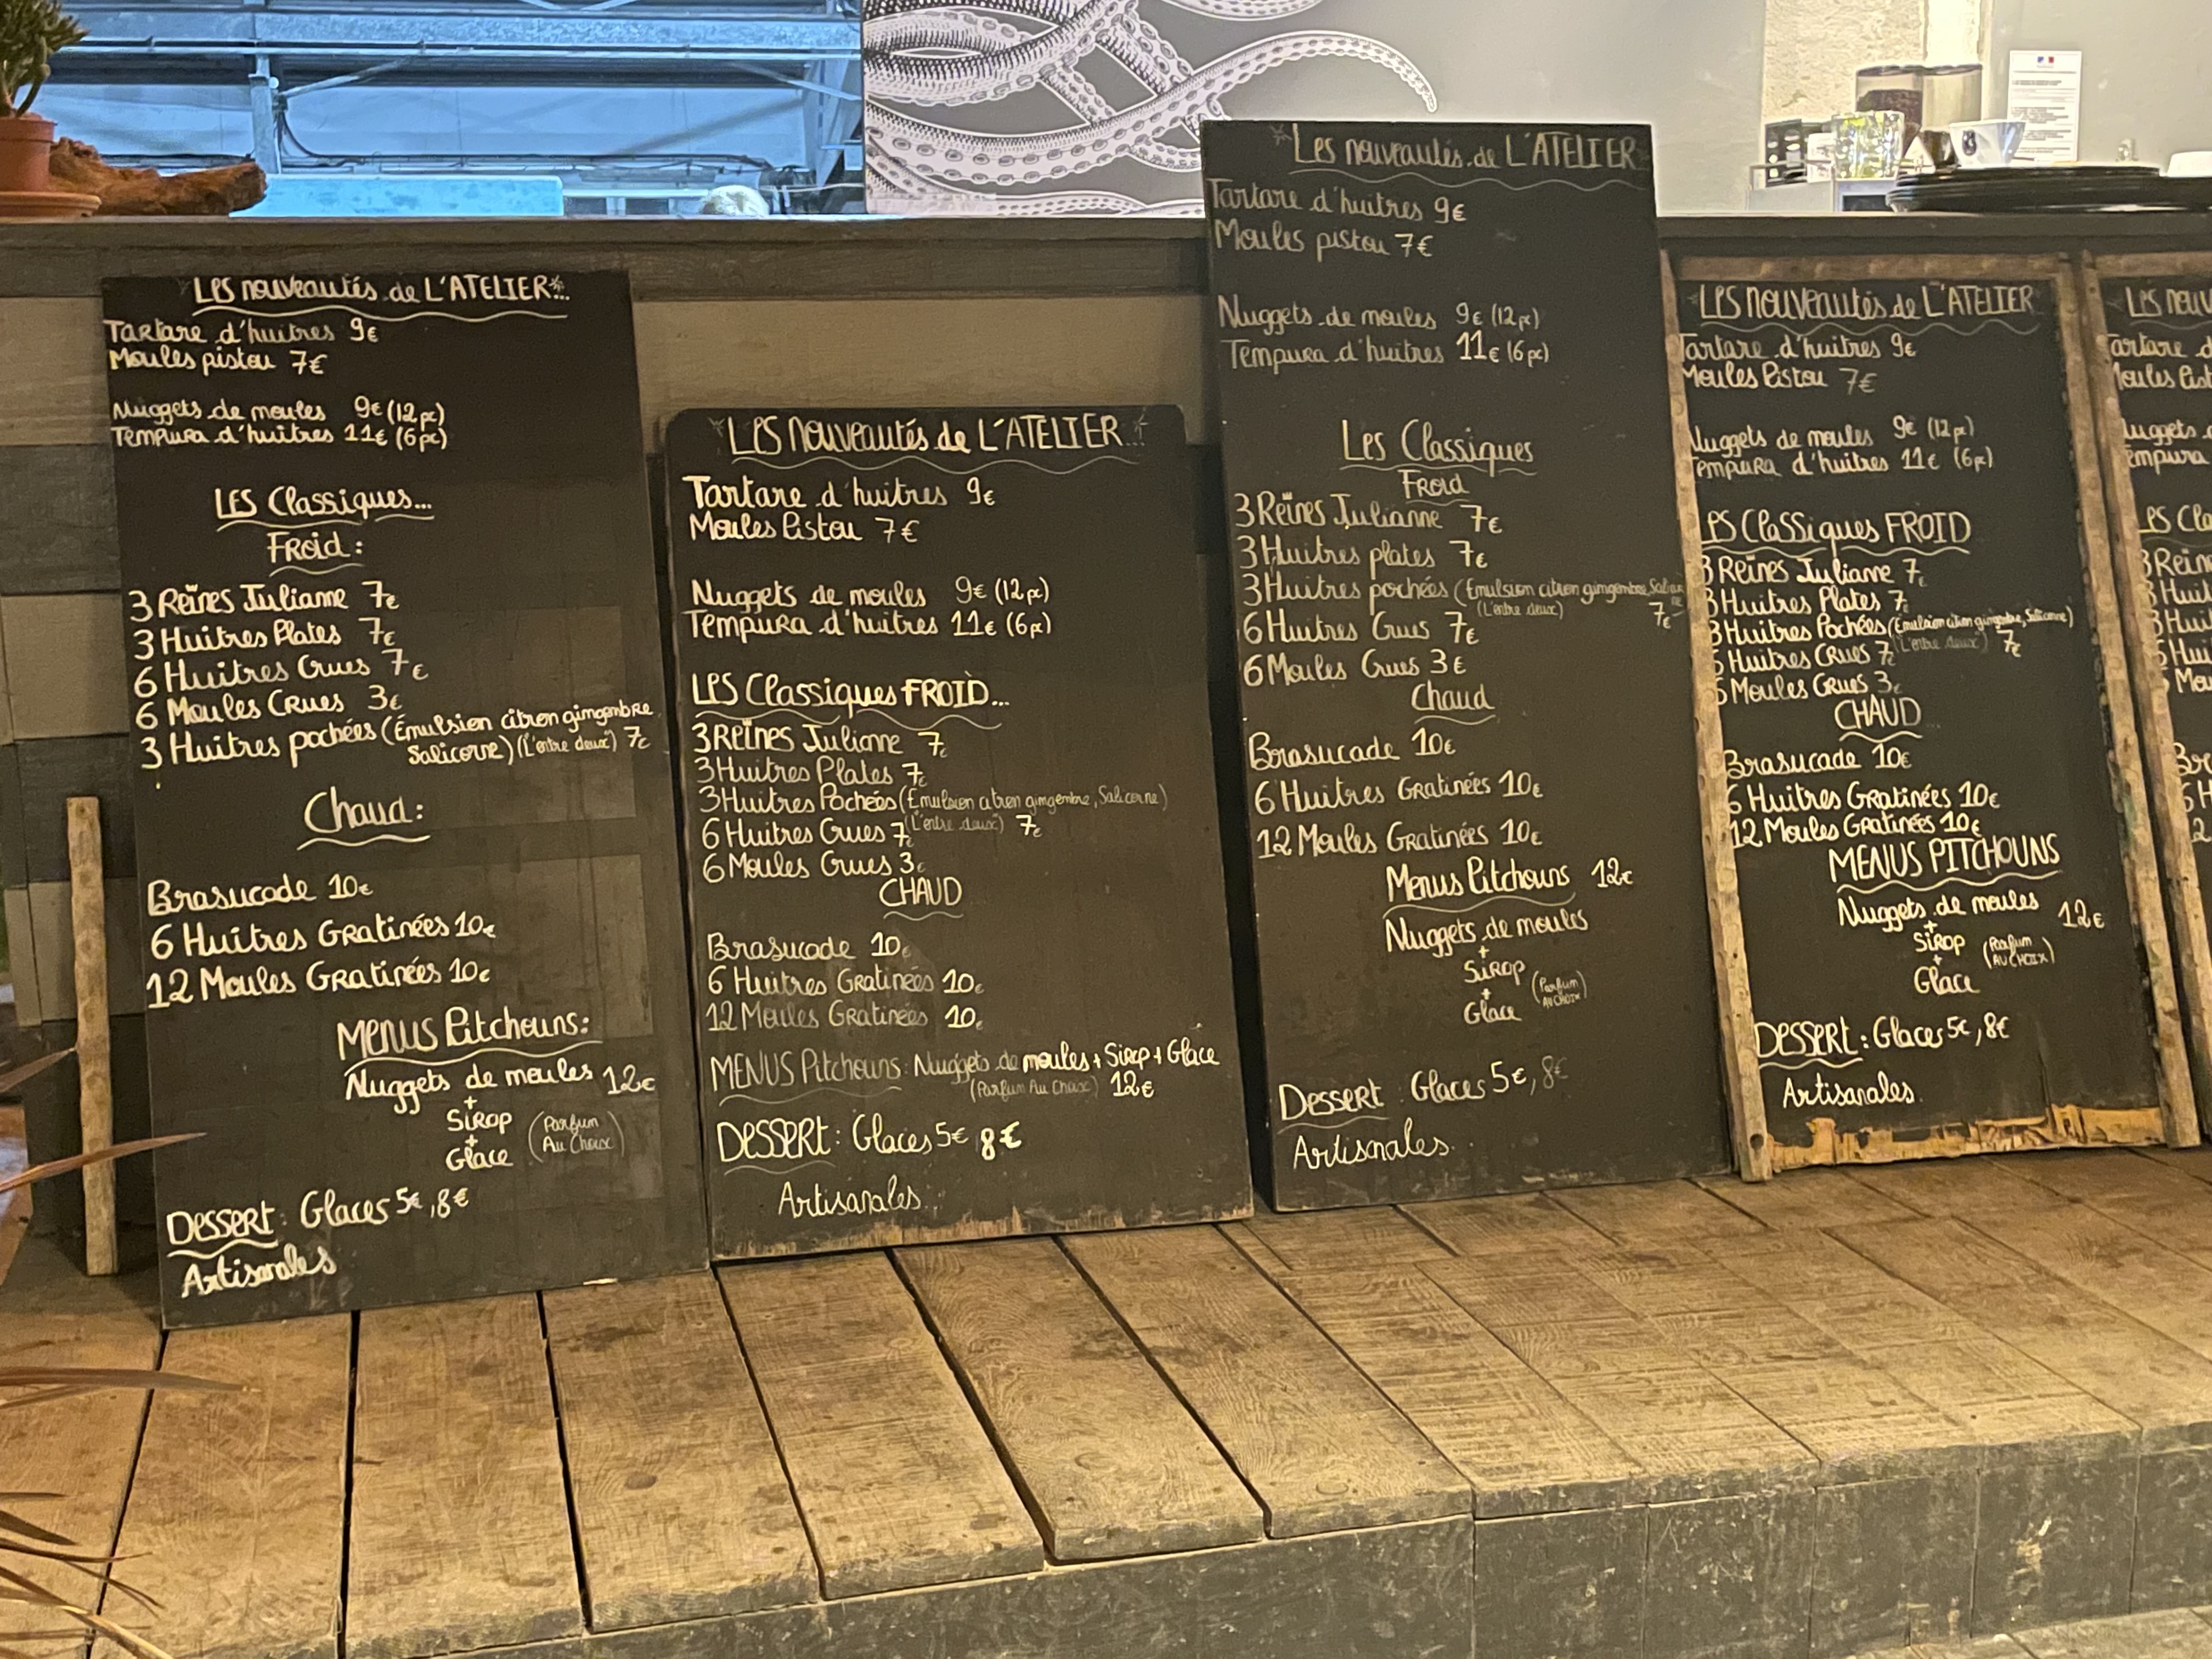 Les nouveautés de L'ATELIER...
Tartare d'huitres 9€
Moules pistou 7€
Nuggets de moules 9€ (12 pc)
Tempura d'huîtres 11€ (6 pc)
Les Classiques...
Froid :
3 Reines Julianne 7€
3 Huitres Plates 7€
6 Huitres Crues 7€
6 Moules Crues 3€
3 Huitres pochées (Émulsion citron gimgembre
Salicorne) (L'entre deux) 7€
Chaud :
Brasucade 10€
6 Huitres Gratinées 10€
12 Moules Gratinées 10€
Menus Pitchouns :
Nuggets de moules 12€
+
Sirop
+
Glace
(Parfum
Au Choix)
Dessert : Glaces 5€, 8€
Artisanales
Les nouveautés de L'ATELIER...
Tartare d'huitres 9€
Moules Pistou 7€
Nuggets de moules 9€ (12 pc)
Tempura d'huitres 11€ (6 pc)
Les Classiques FROID...
3 Reines Julianne 7€
3 Huitres Plates 7€
3 Huitres Pochées (Emulsion citron gimgembre, Salicorne)
(L'entre deux) 7€
6 Huitres Crues 7€
6 Moules Crues 3€
CHAUD
Brasucade 10€
6 Huitres Gratinées 10€
12 Moules Gratinées 10€
MENUS Pitchouns : Nuggets de moules + Sirop + Glace
(Parfum Au Choix) 12€
DESSERT : Glaces 5€ 8€
Artisanales..
Les nouveautés de L'ATELIER
Tartare d'huitres 9€
Moules pistou 7€
Nuggets de moules 9€ (12 pc)
Tempura d'huîtres 11€ (6 pc)
Les Classiques
Froid
3 Reines Julianne 7€
3 Huitres plates 7€
3 Huitres pochées (Emulsion citron gimgembre,
(L'entre deux) 7€
6 Huitres Crues 7€
6 Moules Crues 3€
Chaud
Brasucade 10€
6 Huitres Gratinées 10€
12 Moules Gratinées 10€
Menus Pitchouns 12€
Nuggets de moules
+
Sirop
+
Glace
(Parfum
AU CHOIX)
Dessert : Glaces 5€, 8€
Artisanales.
Les nouveautés de L'ATELIER
Tartare d'huitres 9€
Moules Pistou 7€
Nuggets de moules 9€ (12 pc)
Tempura d'huitres 11€ (6 pc)
Les Classiques FROID
3 Reines Julianne 7€
3 Huitres Plates 7€
3 Huitres Pochées (Emulsion citron gimgembre, Salicorne)
(L'entre deux) 7€
6 Huitres Crues 7€
6 Moules Crues 3€
CHAUD
Brasucade 10€
6 Huitres Gratinées 10€
12 Moules Gratinées 10€
MENUS PITCHOUNS
Nuggets de moules 12€
+
Sirop
+
Glace
(Parfum
AU CHOIX)
DESSERT : Glaces 5€, 8€
Artisanales.
Les
Tartare
Moules
Nuggets
Tempura